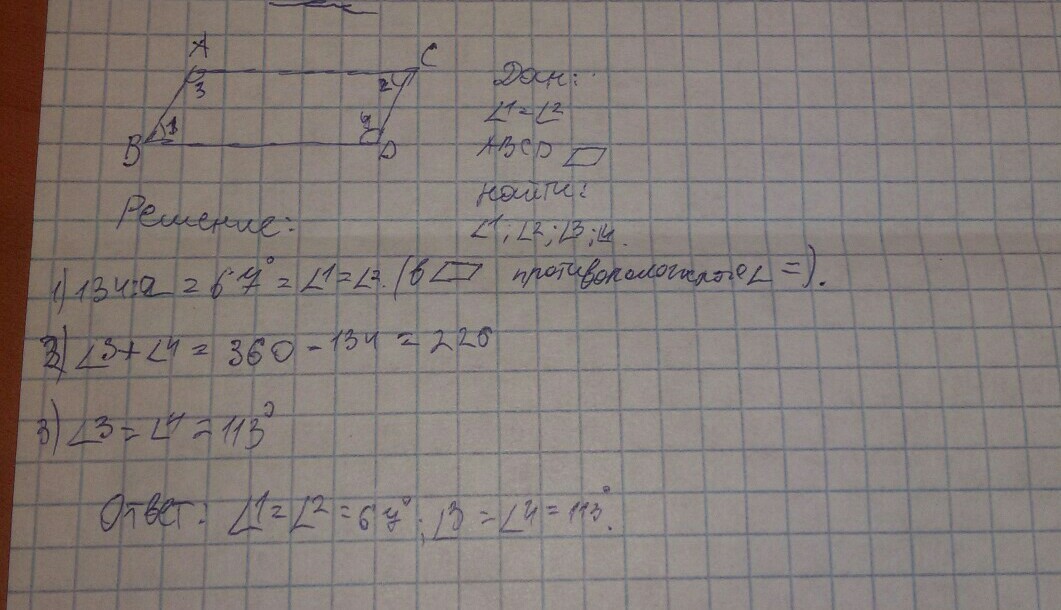 A
C
3
2
1
4
B
D
Дан:
∠1=∠2
ABCD ▱
Найти:
∠1; ∠2; ∠3; 4.
Решение:
1) 134:2 = 67° = ∠1 = ∠2. (в ▱ противоположное ∠ =).
2) ∠3+∠4 = 360 - 134 = 226
3) ∠3 = ∠4 = 113°
Ответ: ∠1 = ∠2 = 67°; ∠3 = ∠4 = 113°.